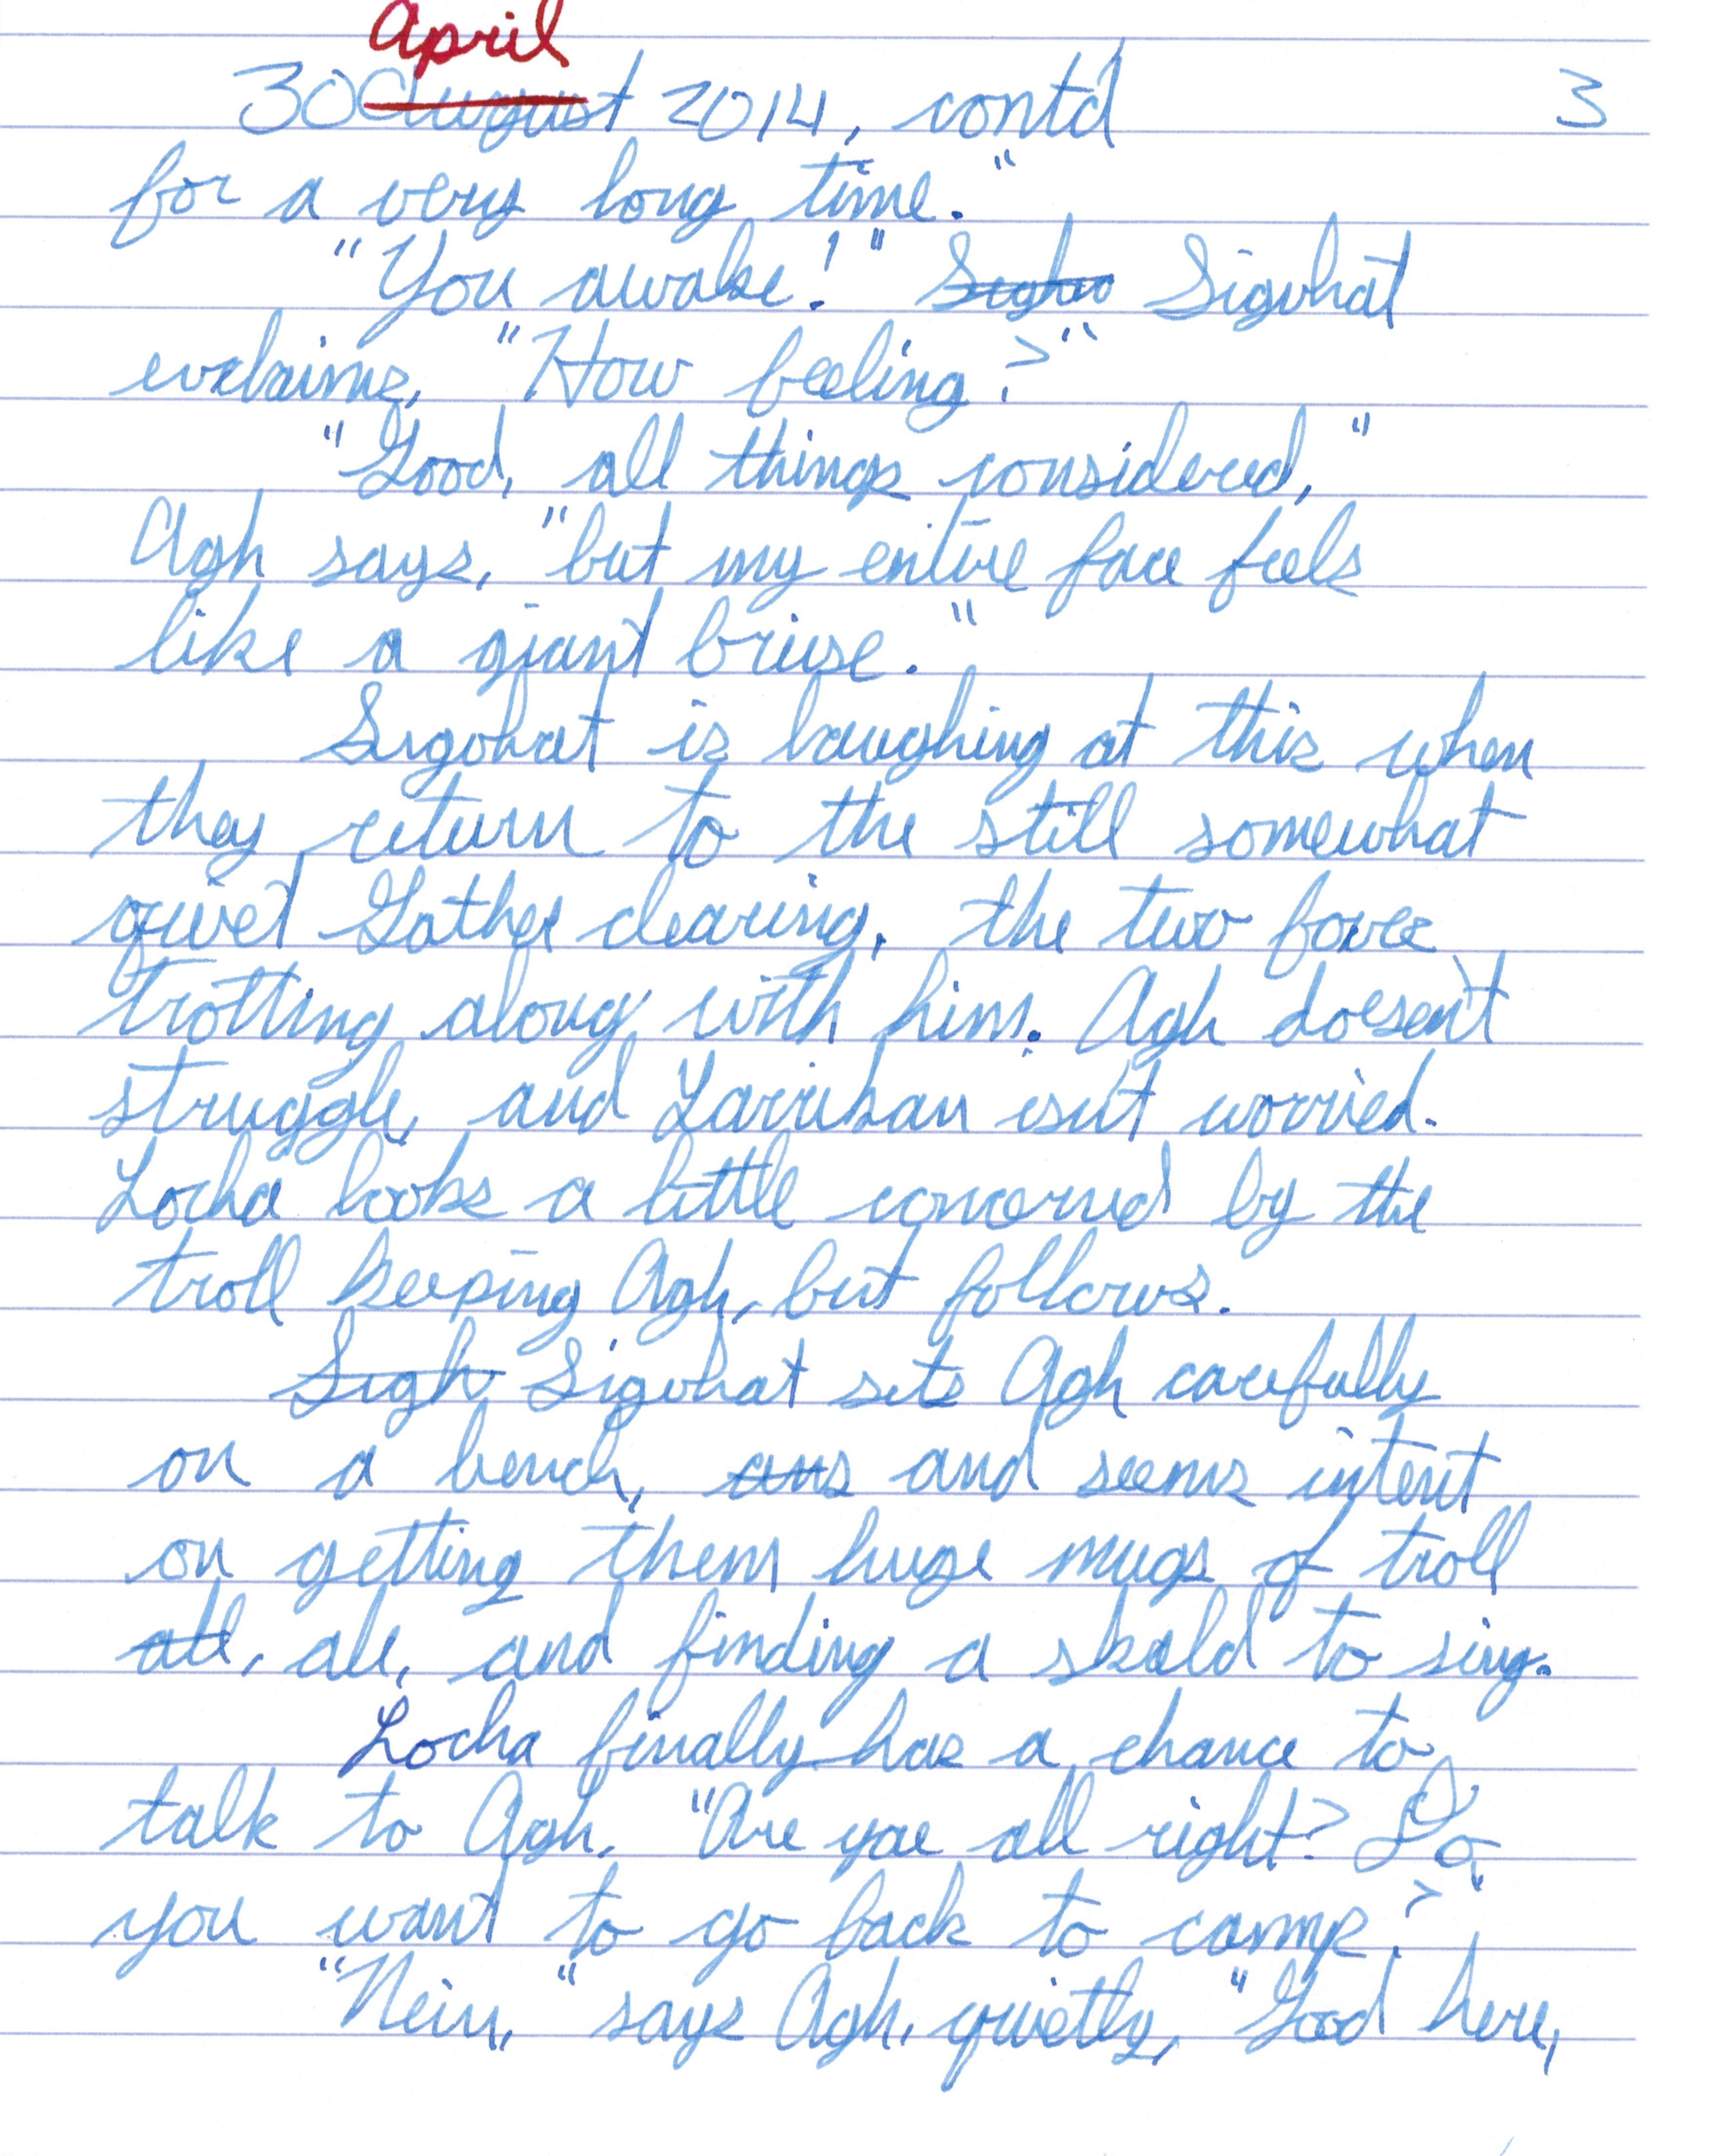 April
30 August 2014, contd 3
for a very long time."
"You awake!" Sighv Sigvhat
exclaims, "How feeling?"
"Good, all things considered,"
Agh says, "but my entire face feels
like a giant bruise."
Sigvhat is laughing at this when
they return to the still somewhat
quiet Gather clearing, the two foxes
trotting along with him. Agh doesn't
struggle, and Larrikan isn't worried.
Locha looks a little concerned by the
troll keeping Agh, but follows.
Sigh Sigvhat sets Agh carefully
on a bench, ans and seems intent
on getting them huge mugs of troll
all, ale, and finding a skald to sing.
Locha finally has a chance to
talk to Agh. "Are yae all right? Do
you want to go back to camp?"
"Nein," says Agh, quietly, "Good here,